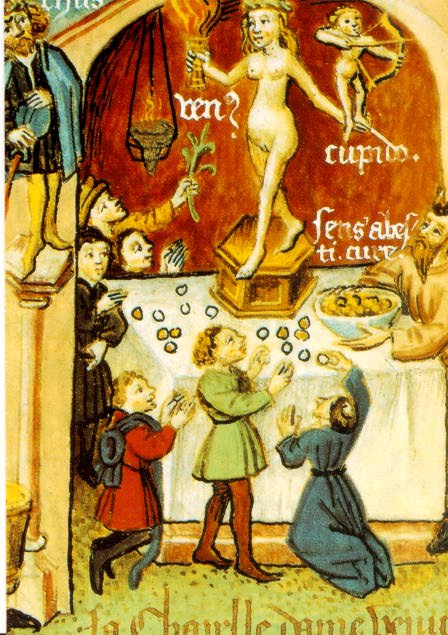 chus
ven
cupido.
sens abes
ti. cure
la Chapelle dame venu